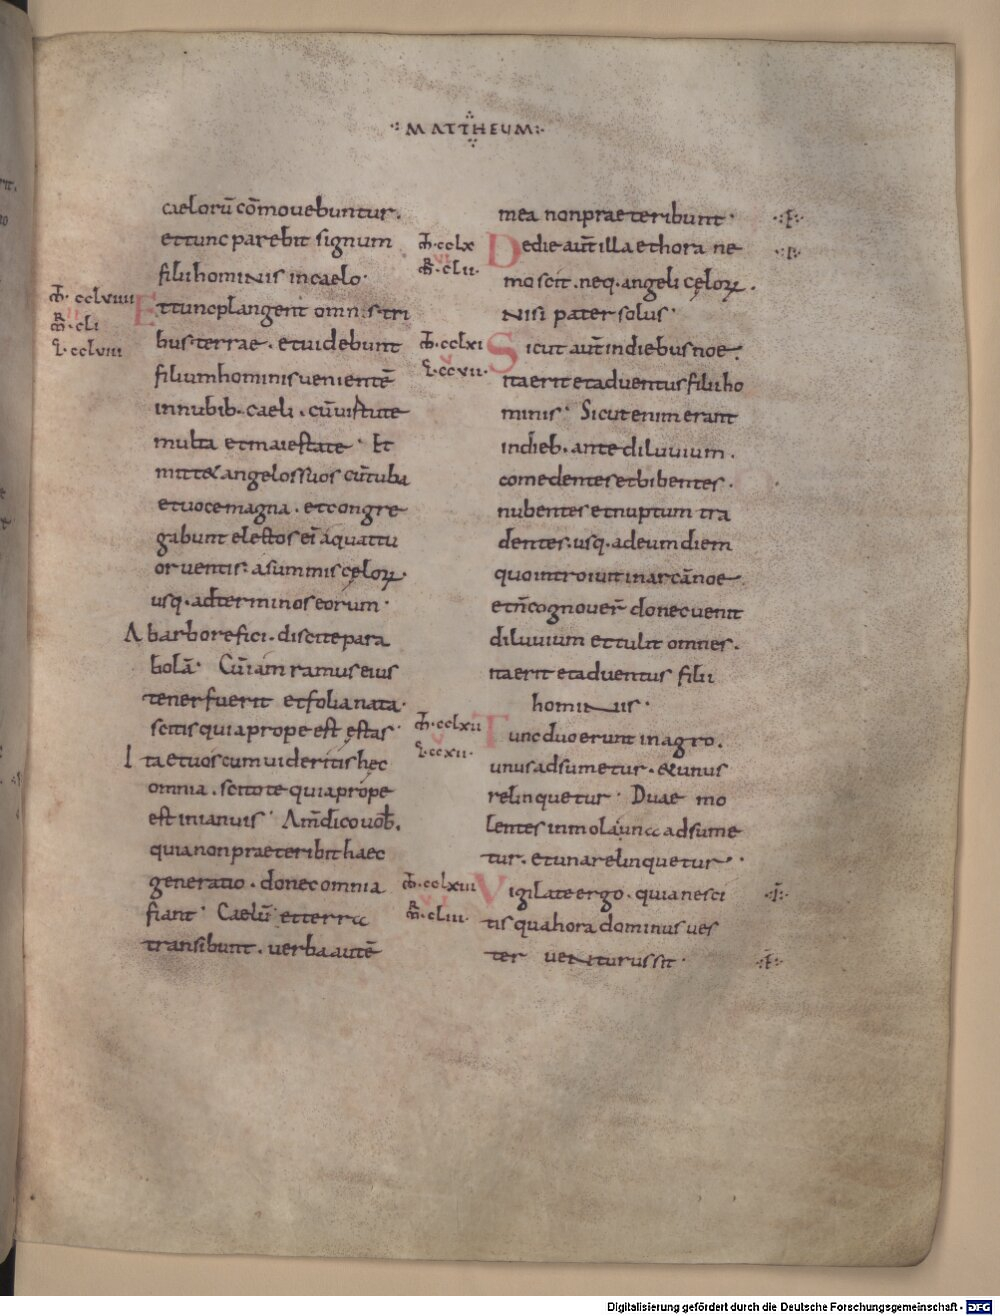 MATTHEUM
caelorū cōmovebuntur.
et tunc parebit signum
filii hominis in caelo.
Et tunc plangent omnes tri
bus terrae. et videbunt
filium hominis venientē
in nubib. caeli. cū virtute
multa et maiestate. Et
mittet angelos suos cū tuba
et voce magna. et congre
gabunt electos ei᷒ a quattu
or ventis. a summis cęloꝝ.
usq. ad terminos eorum.
Ab arbore fici. discite para
bolā. Cū iam ramus eius
tener fuerit et folia nata.
scitis quia prope est ęstas.
Ita et vos cum videritis hęc
omnia. scitote quia prope
est in ianuis. Am̄ dico vob̄.
quia non praeteribit haec
generatio. donec omnia
fiant. Caelū et terra
transibunt. verba autē
mea non praeteribunt.
De die aūt illa et hora ne
mo scit. neq. angeli cęloꝝ.
Nisi pater solus.
Sicut aūt in diebus noe.
ita erit et adventus filii ho
minis. Sicut enim erant
in dieb. ante diluvium.
comedentes et bibentes.
nubentes et nuptum tra
dentes. usq. ad eum diem
quo introivit in arcā noe.
et n̄ cognover̄ donec venit
diluvium et tulit omnes.
ita erit et adventus filii
hominis.
Tunc duo erunt in agro.
unus adsumetur. et unus
relinquetur. Duae mo
lentes in mola, una adsume
tur. et una relinquetur.
Vigilate ergo. quia nesci
tis qua hora dominus ves
ter venturus sit.
cclviiii
cli
cclviii
cclx
clii
cclxi
ccvii
cclxii
ccxii
cclxiii
cliii
Digitalisierung gefördert durch die Deutsche Forschungsgemeinschaft - DFG